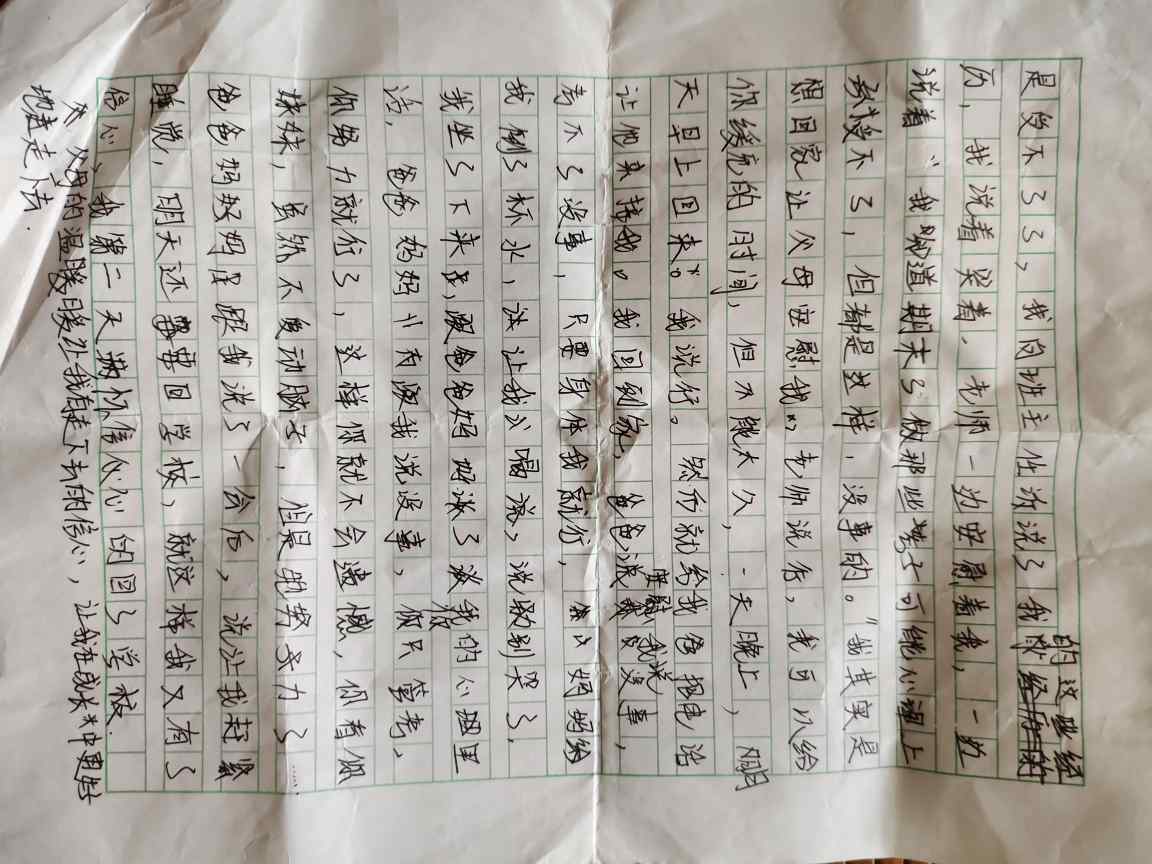 是受不了了，我向班主任诉说了我的这些经
历，我说着哭着，老师一边安慰着我，一边
说着“我知道期末了做那些卷子可能心理上
承接不了，但都是这样，没事的。”我其实是
想回家让父母安慰我”，老师说行，我可以给
你缓充的时间，但不能太久，一天晚上，明
天早上回来”。我说行。然而就给我爸报电话
让他来接我。我回到家，爸爸安慰我说没事，
考不了没事，只要身体就行，妈妈给
我倒了杯水，让我喝说，说别哭了，
我坐了下来，跟爸爸妈妈谈了谈我的心理里
话，爸爸妈妈有没我说没事，你只管考，
你努力就行了，这样你就不会遗憾，你看你
妹妹，虽然不爱动脑子，但是她努力了
爸爸妈妈跟我说了一会后，说让我赶紧
睡觉，明天还要回学校，就这样我又有了
信心，我第二天满怀信心的回了学校.
父母的温暖让我有走下去的信心，让我在成长中更好
地走下去.